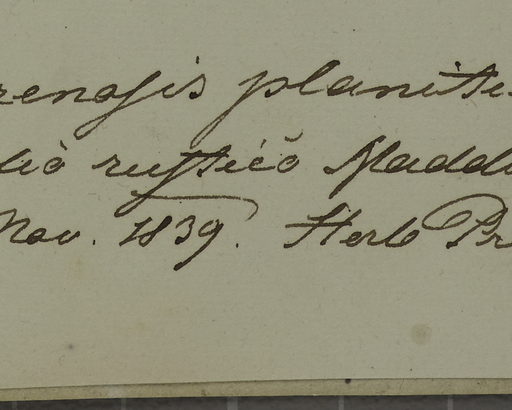 renſis planitie
dio ruſticŏ Madd
Nov. 1839. Herb Pr